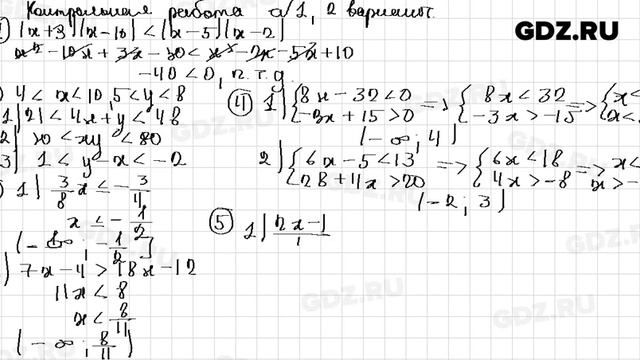 Контрольная работа а/1, 2 вариант.
GDZ.RU
(x+3)(x-10) < (x-5)(x-2)
x²-10x+3x-30 < x²-2x-5x+10
-40<0, п.т.д.
4<x<10, 5<y<8
1) 21<4x+y<48
2) 20<xy<80
3) 1<y-x<-2
1) 3/8 x ≤ -3/4
x ≤ -1/2
(-∞; -1/2]
7x-4 > 18x-12
11x<8
x<8/11
(-∞; 8/11)
④ 1) {8x-32<0 => {8x<32 => {x<
{-3x+15>0 {-3x>-15 {x<
(-∞; 4)
2) {6x-5<13 => {6x<18 => x<
{28+4x>20 {4x>-8 x>-
(-2; 3)
⑤ 1) 2x-1